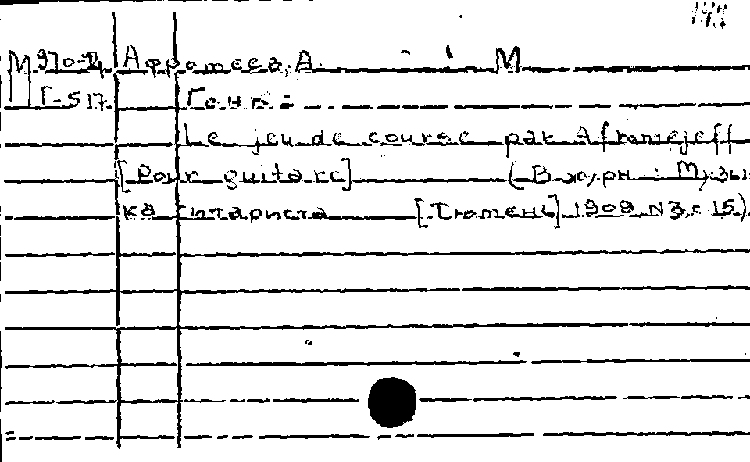 М 970-14 Афромеев, А. М
Г-517 Гонк =
Le jeu de course par Afromejeff
[Pour guitare] (В журн : Музы
ка гитариста [Тюмень] 1909 N3, с 15)